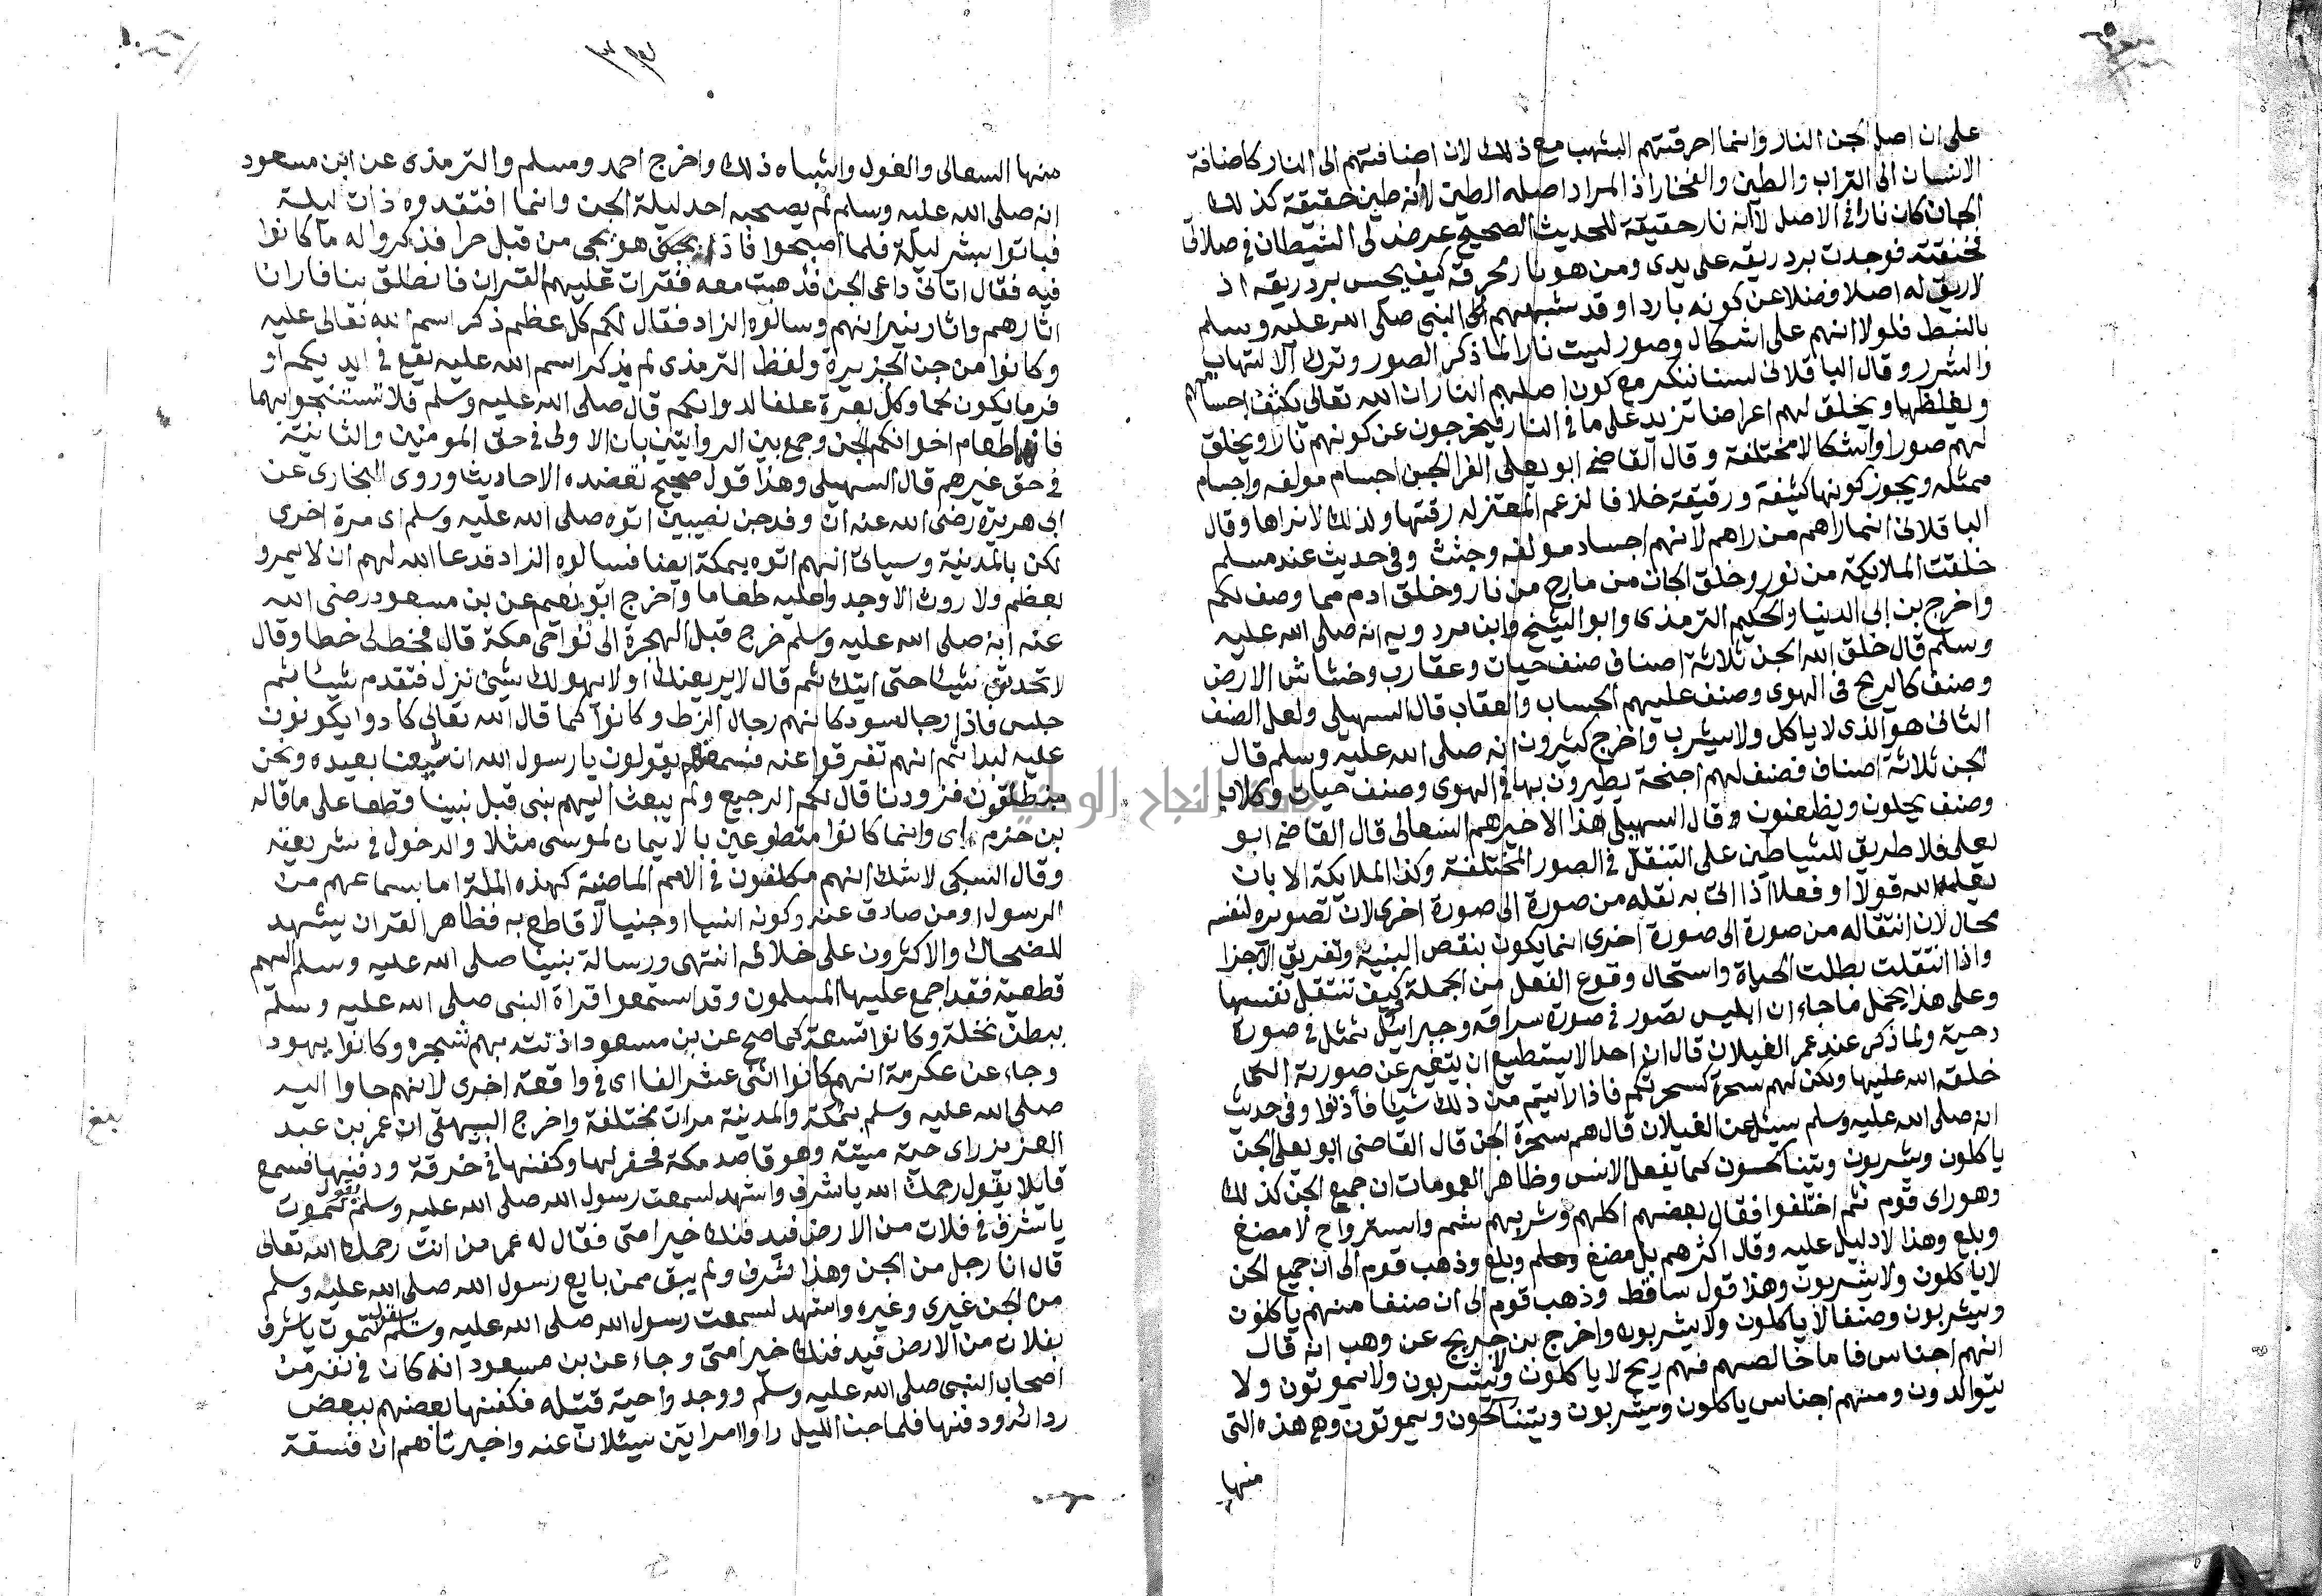 على ان اصل الجن النار وانما احرقتهم الشهب مع ذلك لان اضافتهم الى النار كاضافة
الانسان الى التراب والطين والفخار اذ المراد اصله الطين لا انه طين حقيقة كذلك
الجان كان نارا في الاصل لا انه نار حقيقة للحديث الصحيح عرض لى الشيطان في صلاتي
فخنقته فوجدت برد ريقه على يدى ومن هو نار محرقة كيف يحس برد ريقه اذ
لا ريق له اصلا فضلا عن كونه باردا وقد شبههم النبى صلى الله عليه وسلم
بالنبط فلولا انهم على اشكال وصور ليست نارا لما ذكر الصور وترك الالتهاب
والشرر وقال الباقلانى لسنا ننكر مع كون اصلهم النار ان الله تعالى يكثف اجسامهم
ويغلظها ويخلق لهم اعراضا تزيد على ما في النار فيخرجون عن كونهم نارا ويخلق
لهم صورا واشكالا مختلفة وقال القاضي ابو يعلى الفرا الجن اجسام مولفه واجسام
ممثله ويجوز كونها كثيفة ورقيقة خلافا لزعم المعتزله رقتها ولذلك لا نراها وقال
الباقلانى انما راهم من راهم لانهم اجساد مولفه وجثث وفى حديث عند مسلم
خلقت الملايكة من نور وخلق الجان من مارج من نار وخلق ادم مما وصف لكم
واخرج بن ابى الدنيا والحكيم الترمذى وابو الشيخ وابن مردويه انه صلى الله عليه
وسلم قال خلق الله الجن ثلاثة اصناف صنف حيات وعقارب وخشاش الارض
وصنف كالريح فى الهوى وصنف عليهم الحساب والعقاب قال السهيلى ولعل الصنف
الثانى هو الذى لا ياكل ولا يشرب واخرج كثيرون انه صلى الله عليه وسلم قال
الجن ثلاثة اصناف فصنف لهم اجنحة يطيرون بها فى الهوى وصنف حيات وكلاب
وصنف يحلون ويظعنون وقال السهيلى هذا الاخير هم السعالى قال القاضى ابو
يعلى فلا طريق للشياطين على التنقل في الصور المختلفة وكذا الملايكة الا بان
يعلمه الله قولا او فعلا اذا اتى به نقله من صورة الى صورة اخرى لان تصويره لنفسه
محال لان انتقاله من صورة الى صورة اخرى انما يكون بنقص البنية وتفريق الاجزا
واذا انتقلت بطلت الحياة واستحال وقوع الفعل من الجملة كيف تنتقل نفسها
وعلى هذا يحمل ما جاء ان ابليس تصور في صورة سراقه وجبرائيل تمثل في صورة
دحية ولما ذكر عند عمر الغيلان قال ان احدا لا يستطيع ان يتغير عن صورته التى
خلقه الله عليها ولكن لهم سحرة كسحرتكم فاذا رايتم من ذلك شيا فأذنوا وفى حديث
انه صلى الله عليه وسلم سئل عن الغيلان قال هم سحرة الجن قال القاضى ابو يعلى الجن
ياكلون ويشربون ويتناكحون كما يفعل الانس وظاهر العمومات ان جميع الجن كذلك
وهو راى قوم ثم اختلفوا فقال بعضهم اكلهم وشربهم شم واسترواح لا مضغ
وبلع وهذا لا دليل عليه وقال اكثرهم بل مضغ وبلع وذهب قوم الى ان جميع الجن
لا ياكلون ولا يشربون وهذا قول ساقط وذهب قوم الى ان صنفا منهم ياكلون
ويشربون وصنفا لا ياكلون ولا يشربون واخرج بن جريج عن وهب انه قال
انهم اجناس فاما خالصهم فهم ريح لا ياكلون ولا يشربون ولا يموتون ولا
يتوالدون ومنهم اجناس ياكلون ويشربون ويتناكحون ويموتون وهي هذه التى
منها
منها السعالى والغول واشباه ذلك واخرج احمد ومسلم والترمذى عن ابن مسعود
انه صلى الله عليه وسلم لم يصحبه احد ليلة الجن وانما افتقدوه ذات ليلة
فباتوا بشر ليلة فلما اصبحوا فاذا هو يجى من قبل حرا فذكروا له ما كانوا
فيه فقال اتانى داعى الجن فذهبت معه فقرات عليهم القران فانطلق بنا فاران
اثارهم واثار نيرانهم وسالوه الزاد فقال لكم كل عظم ذكر اسم الله تعالى عليه
وكانوا من جن الجزيرة ولفظ الترمذى لم يذكر اسم الله عليه يقع في ايديكم او
فرما يكون لحما وكل بعرة علفا لدوابكم قال صلى الله عليه وسلم فلا تستنجوا بهما
فانها طعام اخوانكم الجن وجمع بين الروايتين بان الاولى في حق المومنين والثانية
في حق غيرهم قال السهيلى وهذا قول صحيح تعضده الاحاديث وروى البخارى عن
ابى هريرة رضى الله عنه ان وفد جن نصيبين اتوه صلى الله عليه وسلم اى مرة اخرى
لكن بالمدينة وسياتى انهم اتوه بمكة ايضا فسالوه الزاد فدعا الله لهم ان لا يمرو
بعظم ولا روث الا وجدوا عليه طعاما واخرج ابو نعيم عن بن مسعود رضى الله
عنه انه صلى الله عليه وسلم خرج قبل الهجرة الى نواحى مكة قال فخط لى خطا وقال
لا تحدثن شيئا حتى اتيك ثم قال لا يريعنك او لا يهولك شيئ نزل فتقدم شيئا ثم
جلس فاذا رجال سود كانهم رجال الزط وكانوا كما قال الله تعالى كادوا يكونون
عليه لبدا ثم انهم تفرقوا عنه فسمعتهم يقولون يا رسول الله ان شقتنا بعيده ونحن
منطلقون فزودنا قال لكم الرجيع ولم يبعث اليهم نبى قبل نبينا قطعا على ما قاله
بن حزم اى وانما كانوا متطوعين بالايمان لموسى مثلا والدخول في شريعته
وقال السبكى لا شك انهم مكلفون في الامم الماضية كهذه الملة اما بسماعهم من
الرسول او من صادق عنه وكونه انسيا او جنيا لا قاطع به فظاهر القران يشهد
للضحاك والاكثرون على خلافه انتهى ورسالة نبينا صلى الله عليه وسلم اليهم
قطعية فقد اجمع عليها المسلمون وقد استمعوا قراة النبى صلى الله عليه وسلم
ببطن نخلة وكانوا تسعة كما صح عن بن مسعود اذنته بهم شجره وكانوا يهودا
وجاء عن عكرمة انهم كانوا اثنى عشر الفا اى في واقعة اخرى لانهم جاوا اليه
صلى الله عليه وسلم بمكة والمدينة مرات مختلفة واخرج البيهقى ان عمر بن عبد
العزيز راى حية ميتة وهو قاصد مكة فحفر لها وكفنها في خرقة ودفنها فسمع
قايلا يقول رحمك الله يا شرق واشهد لسمعت رسول الله صلى الله عليه وسلم يقول تموت
يا شرق في فلات من الارض فيدفنك خير امتى فقال له عمر من انت رحمك الله تعالى
قال انا رجل من الجن وهذا شرق ولم يبق ممن بايع رسول الله صلى الله عليه وسلم
من الجن غيرى وغيره واشهد لسمعت رسول الله صلى الله عليه وسلم يقول تموت يا شرق
بفلات من الارض فيدفنك خير امتى وجاء عن بن مسعود انه كان في نفر من
اصحاب النبى صلى الله عليه وسلم ووجدوا حية قتيله فكفنها بعضهم ببعض
ردائه ودفنها فلما جن الليل راوا امراتين يسئلان عنه واخبرتاهم ان فسقة
جامعة النجاح الوطنية